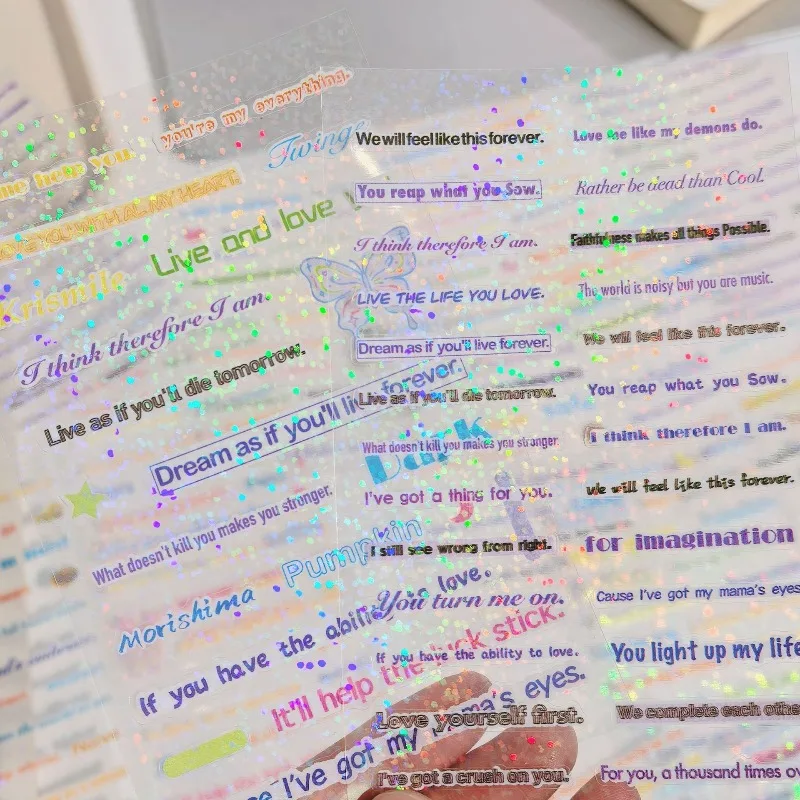 you're my everything.
me help you
Twinge
LOVE YOU WITH ALL MY HEART.
Live and love
Krismile
I think therefore I am.
Live as if you'll die tomorrow.
Dream as if you'll live forever.
What doesn't kill you makes you stronger.
Dark
Pumpkin
Morishima
If you have the ability to love.
It'll help the luck stick.
I've got my mama's eyes.
We will feel like this forever.
You reap what you Sow.
I think therefore I am.
LIVE THE LIFE YOU LOVE.
Dream as if you'll live forever.
Live as if you'll die tomorrow.
What doesn't kill you makes you stronger.
I've got a thing for you.
I still see wrong from right.
You turn me on.
If you have the ability to love.
Love yourself first.
I've got a crush on you.
Love me like my demons do.
Rather be dead than Cool.
Faithfulness makes all things Possible.
The world is noisy but you are music.
We will feel like this forever.
You reap what you Sow.
I think therefore I am.
We will feel like this forever.
for imagination
Cause I've got my mama's eyes
You light up my life
We complete each other
For you, a thousand times ov